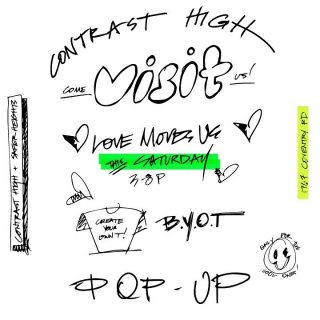 CONTRAST HIGH
COME Visit US!
LOVE MOVES US
THIS SATURDAY
3-8P
CREATE
YOUR
OWN T!
B.Y.O.T
POP-UP
CONTRAST HIGH + SHAKER HEIGHTS
1767 COVENTRY RD